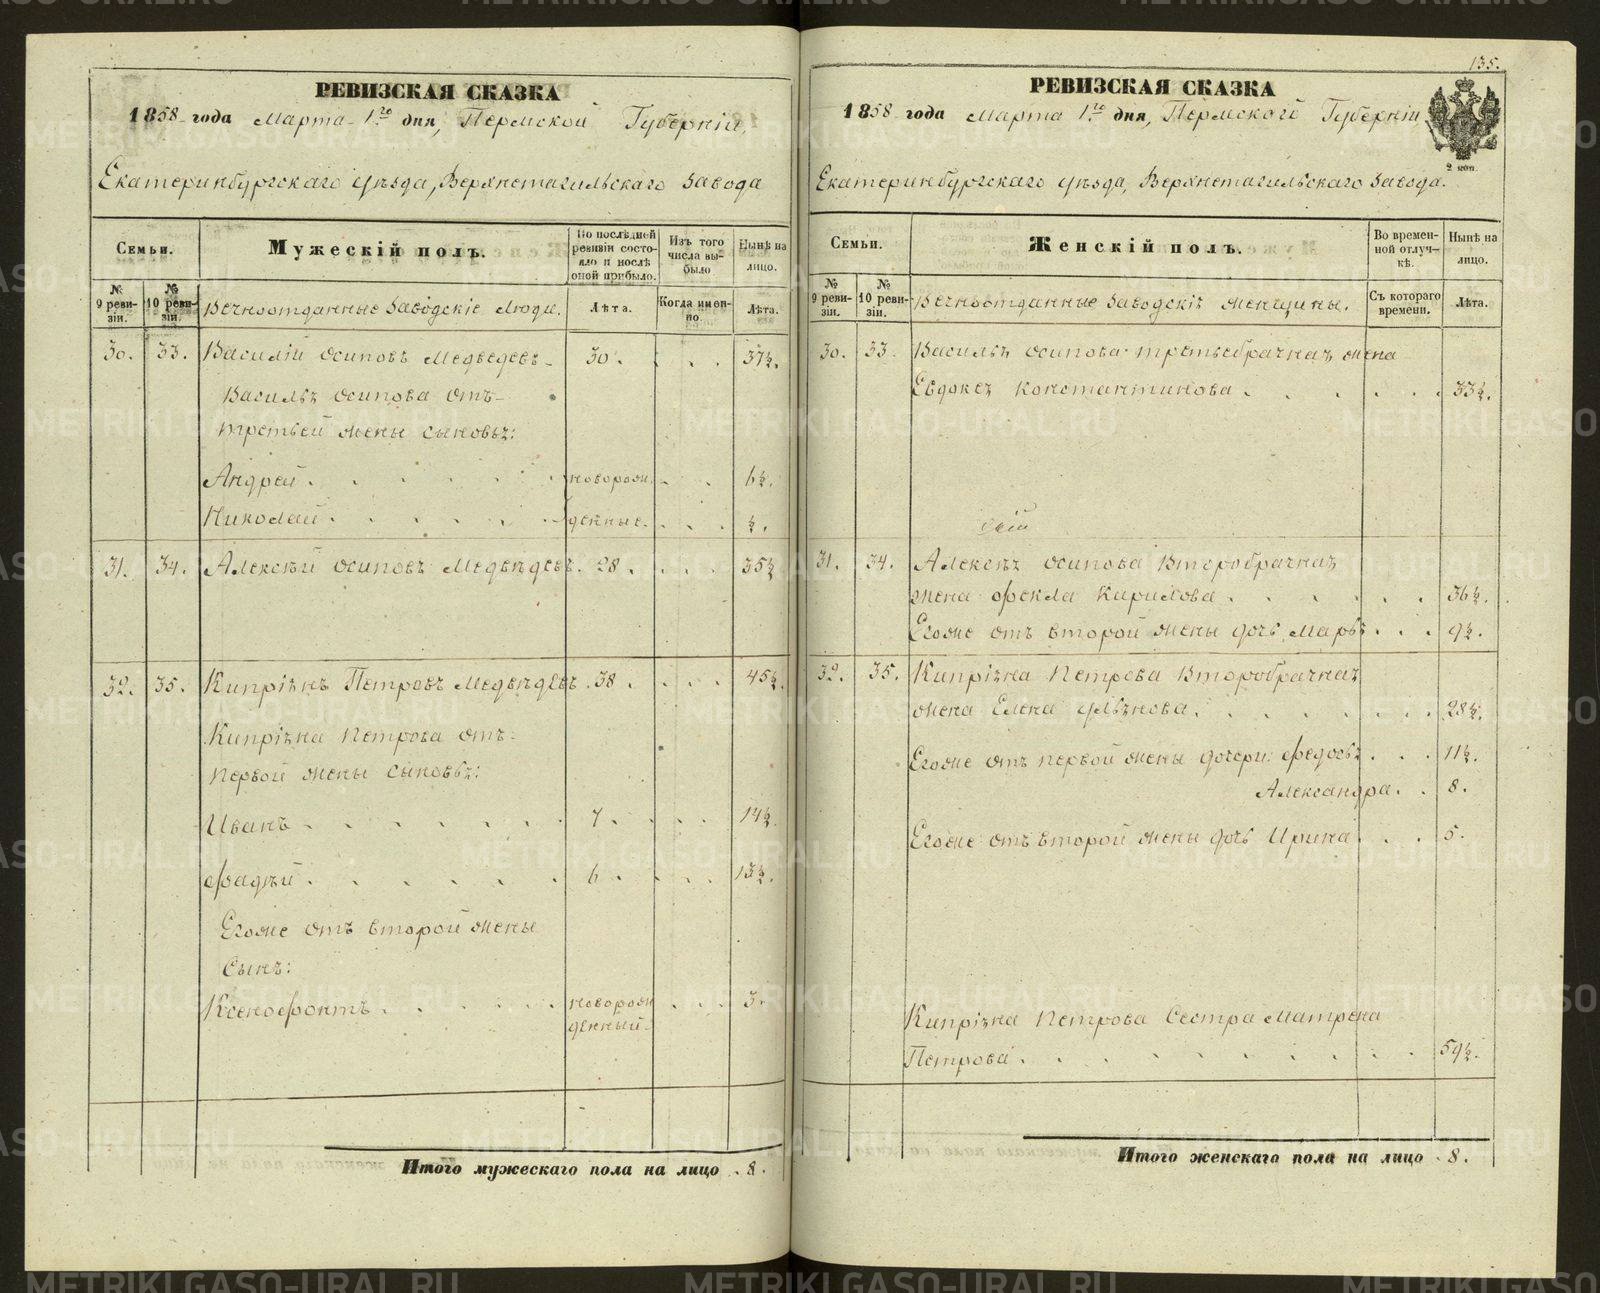 РЕВИЗСКАЯ СКАЗКА
1858 года Марта 1го дня, Пермской Губернiи,
Екатеринбургскаго уѣзда, Верхнетагильскаго Завода
Семьи.
Мужескiй полъ.
По послѣдней ревизiи состояло и послѣ оной прибыло.
Изъ того числа выбыло
Нынѣ на лицо.
№ 9 ревизiи.
№ 10 ревизiи.
Вечноотданные Заводскiе Люди.
Лѣта.
Когда именно
Лѣта.
30. 33. Василiй Осиповъ Медведевъ 30. 37½.
Василья Осипова отъ
третьей жены сыновья:
Андрей новорож 6½.
Николай денные. ½.
31. 34. Алексѣй Осиповъ Медвѣдевъ. 28. 35½
32. 35. Кипрiянъ Петровъ Медвѣдевъ 38. 45½.
Кипрiяна Петрова отъ
первой жены сыновья:
Иванъ 7. 14½
Фадѣй 6. 13½.
Егоже отъ второй жены
Сынъ:
Ксенофонтъ новорож 3.
денный.
Итого мужескаго пола на лицо 8.
135.
РЕВИЗСКАЯ СКАЗКА
1858 года Марта 1го дня, Пермского Губернiи
2 коп.
Екатеринбургскаго уѣзда, Верхнетагильскаго Завода.
Семьи.
Женскiй полъ.
Во временной отлучкѣ.
Нынѣ на лицо.
№ 9 ревизiи.
№ 10 ревизiи.
Вечноотданные Заводскiя женщины.
Съ котораго времени.
Лѣта.
30. 33. Василья Осипова третьебрачная жена
Евдокея Константинова 33½.
31. 34. Алексея Осипова Второбрачная
жена Фекла Карилова 36½.
Егоже отъ второй жены дочь Марья 9½.
32. 35. Кипрiяна Петрова Второбрачная
жена Елена Ульянова. 28½.
Егоже отъ первой жены дочери: Федосья 11½.
Александра. 8.
Егоже отъ второй жены дочь Ирина 5.
Кипрiяна Петрова Сестра Матрена
Петрова 59½.
Итого женскаго пола на лицо 8.
METRIKI.GASO-URAL.RU